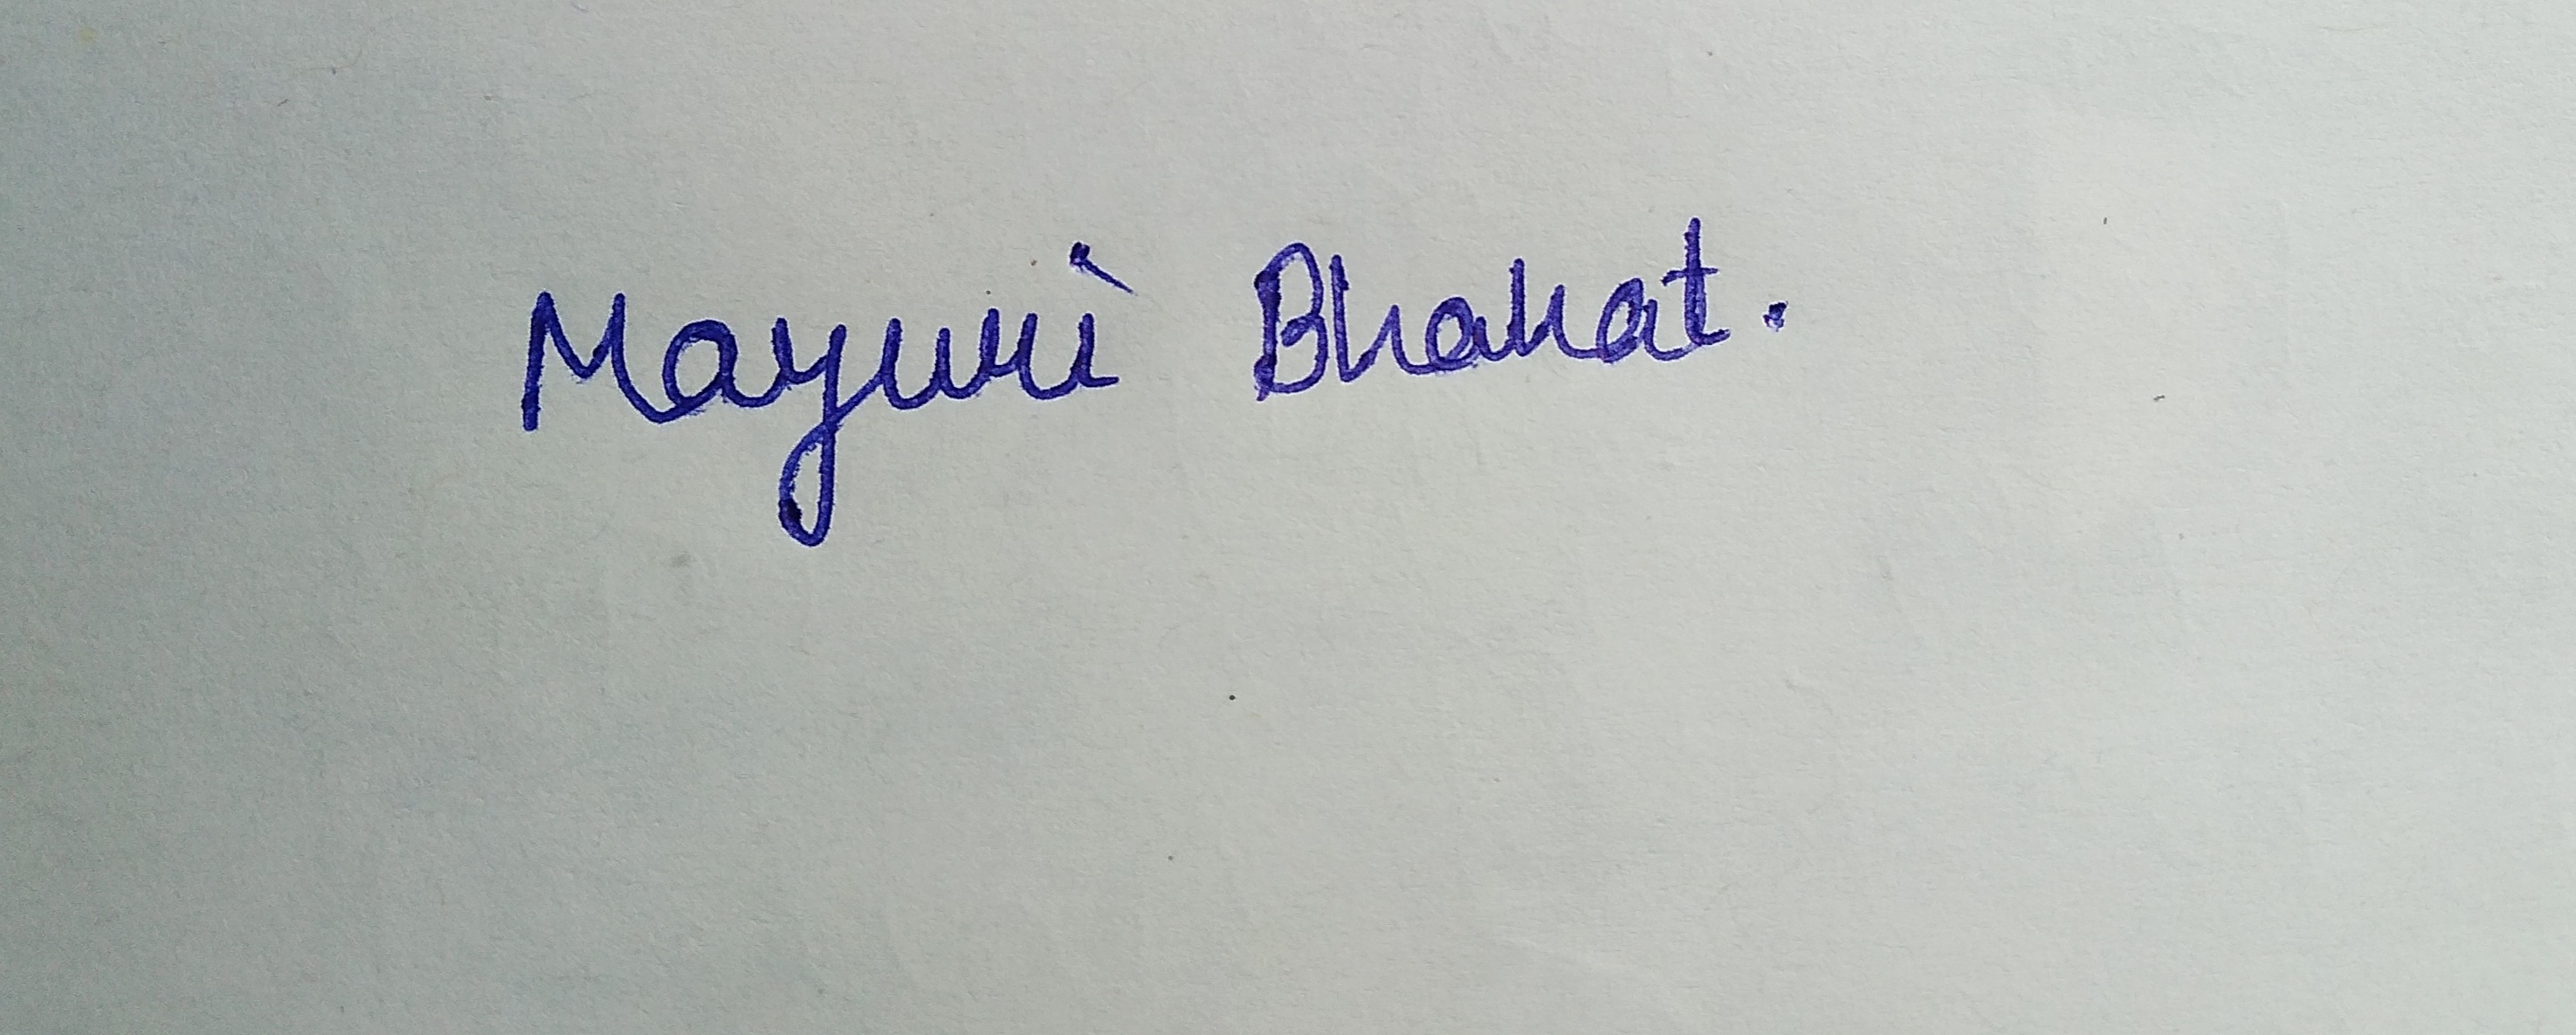 Mayuri Bhakat.